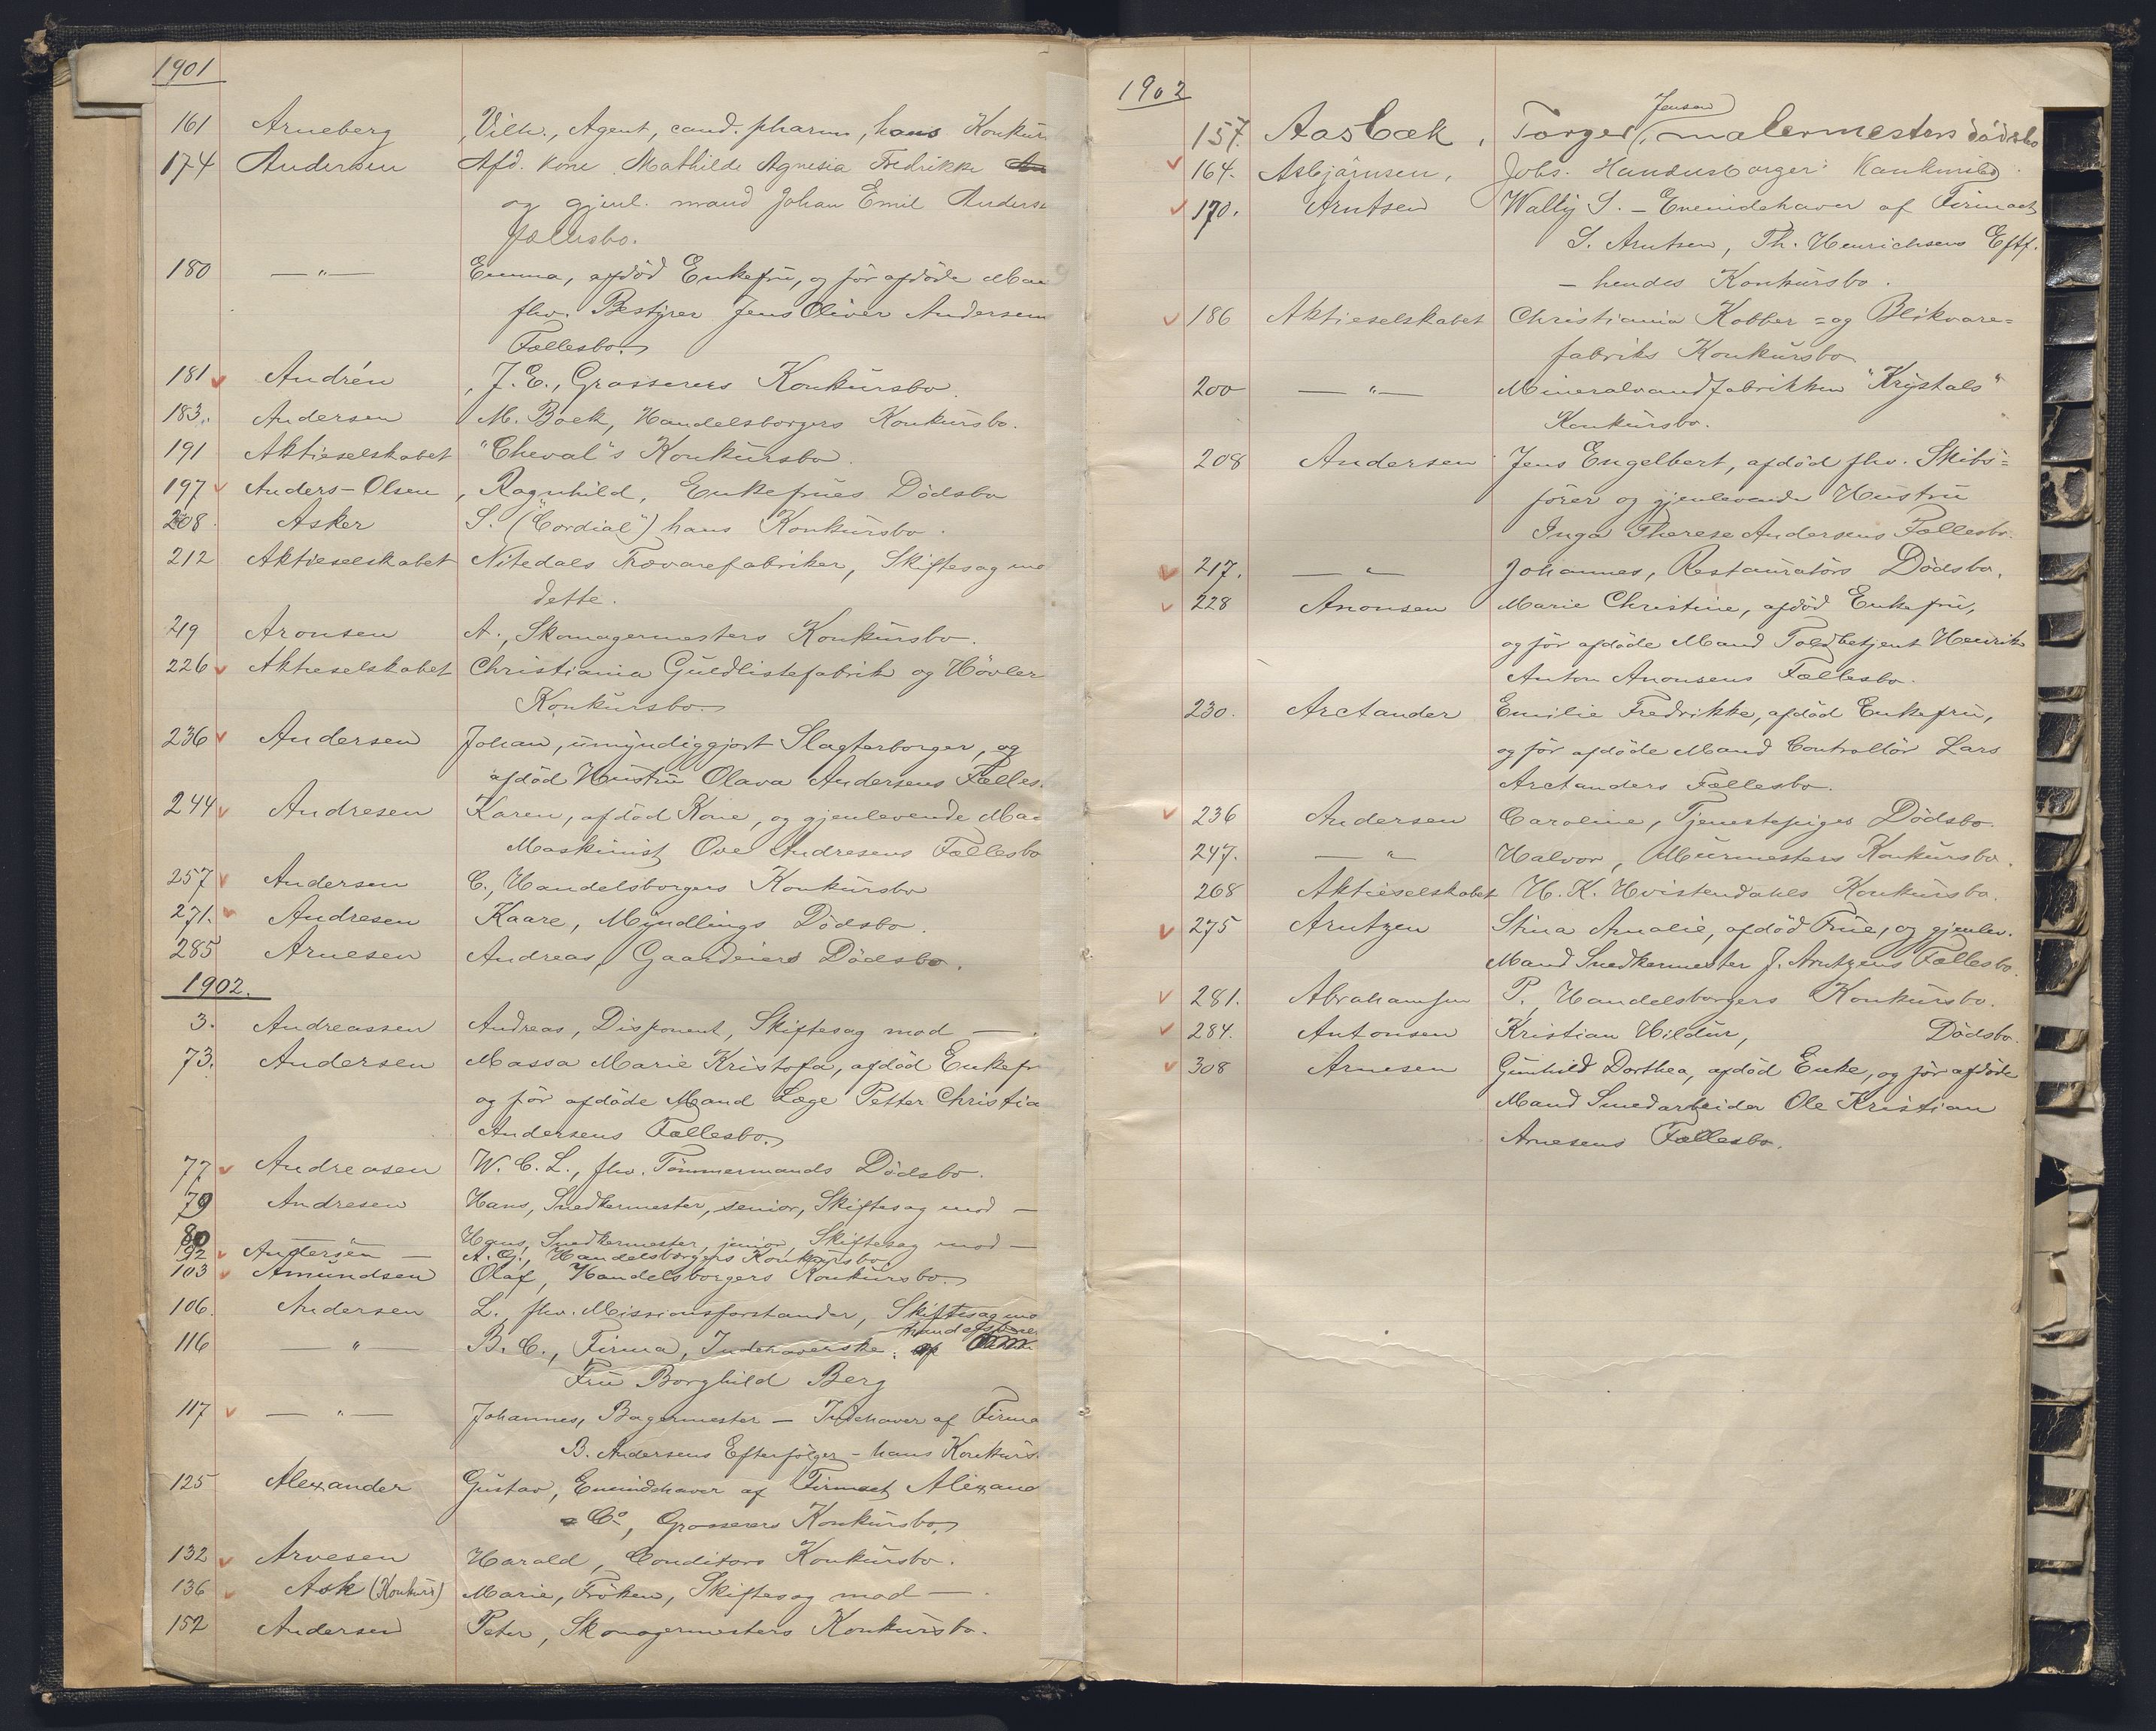 1901
161 Arneberg , Vilh., Agent, cand. pharm, hans Konkurs
174 Andersen Afd. kone Mathilde Agnesia Fredrikke
og gjenl. mand Johan Emil Anderse
fællesbo.
180 — " — Emma, afdöd Enkefru, og för afdöde Man
fhv. Bestyrer Jens Oliver Andersens
Fællesbo.
181 Andrén , J. E., Grosserers Konkursbo.
183. Andersen M. Boek, Handelsborgers Konkursbo.
191 Aktieselskabet "Cheval"s Konkursbo.
197 Anders-Olsen , Ragnhild, Enkefrues Dödsbo
208. Asker S. ("Cordial") hans Konkursbo.
212 Aktieselskabet Nitedals Trævarefabriker, Skiftesag mo
dette.
219 Aronsen A., Skomagermesters Konkursbo.
226 Aktieselskabet Christiania Guldlistefabrik og Hövler
Konkursbo.
236 Andersen Johan, umyndiggjort Slagterborger, og
afdöd Hustru Olava Andersens Fælles.
244 Andresen Karen, afdöd Kone, og gjenlevende Ma
Maskinist Ove Andresens Fællesbo
257 Andersen C., Handelsborgers Konkursbo
271. Andresen Kaare, Myndlings Dödsbo.
285 Arnesen Andreas, Gaardeiers Dödsbo.
1902.
3. Andreassen Andreas, Disponent, Skiftesag mod —.
73. Andersen Massa Marie Kristofa, afdöd Enkefr
og för afdöde Mand Læge Petter Christia
Andersens Fællesbo.
77 Andreasen W. C. L., fhv. Tömmermands Dödsbo.
79 Andresen Hans, Snedkermester, senior, Skiftesag mod —
80 — " — Hans, Snedkermester, junior, Skiftesag mod —
192 Andersen A. G., Handelsborgers Konkursbo.
103 Amundsen Olaf, Handelsborgers Konkursbo.
106. Andersen L., fhv. Missionsforstander, Skiftesag mo
116 — " — B. C., Firma, Indehaverske,
Fru Borghild Berg
117 — " — Johannes, Bagermester — Indehaver af Firma
B. Andersens Efterfölger — hans Konkurs.
125 Alexander Gustav, Eneindehaver af Firmaet Alexand
& Co, Grosserers Konkursbo.
132 Arvesen Harald, Conditors Konkursbo.
136 Ask (Konkurs) Marie, Fröken, Skiftesag mod —.
152 Andersen Peter, Skomagermesters Konkursbo.
1902
Jensen
157. Aasbæk, Torger, malermesters dödsbo
164. Asbjörnsen, Johs. Handesborger Konkursbo.
170. Arntsen Wally S. — Eneindehaver af Firmaet
S. Arntsen, Th. Henrichsens Eftf.
— hendes Konkursbo.
186 Aktieselskabet Christiania Kobber = og Blikvare=
fabriks Konkursbo
200 — " — Mineralvandfabrikken "Krystals"
Konkursbo.
208 Andersen Jens Engelbert, afdöd fhv. Skibs=
förer og gjenlevende Hustru
Inga Therese Andersens Fællesbo.
217. — " — Johannes, Restauratörs Dödsbo.
228 Anonsen Marie Christine, afdöd Enkefru,
og för afdöde Mand Toldbetjent Henrik
Anton Anonsens Fællesbo.
230. Arctander Emilie Fredrikke, afdöd Enkefru,
og för afdöde Mand Controllör Lars
Arctanders Fællesbo.
236 Andersen Caroline, Tjenestepiges Dödsbo.
247. — " — Halvor, Murmesters Konkursbo.
268 Aktieselskabet H. K. Hvistendahls Konkursbo.
275 Arntzen Stina Amalie, afdöd Frue, og gjenlev.
Mand Snedkermester J. Arntzens Fællesbo.
281. Abrahamsen P., Handelsborgers Konkursbo.
284. Antonsen Kristian Hildur, Dödsbo.
308 Arnesen Gunhild Dorthea, afdöd Enke, og för afdöde
Mand Smedarbeider Ole Kristian
Arnesens Fællesbo.